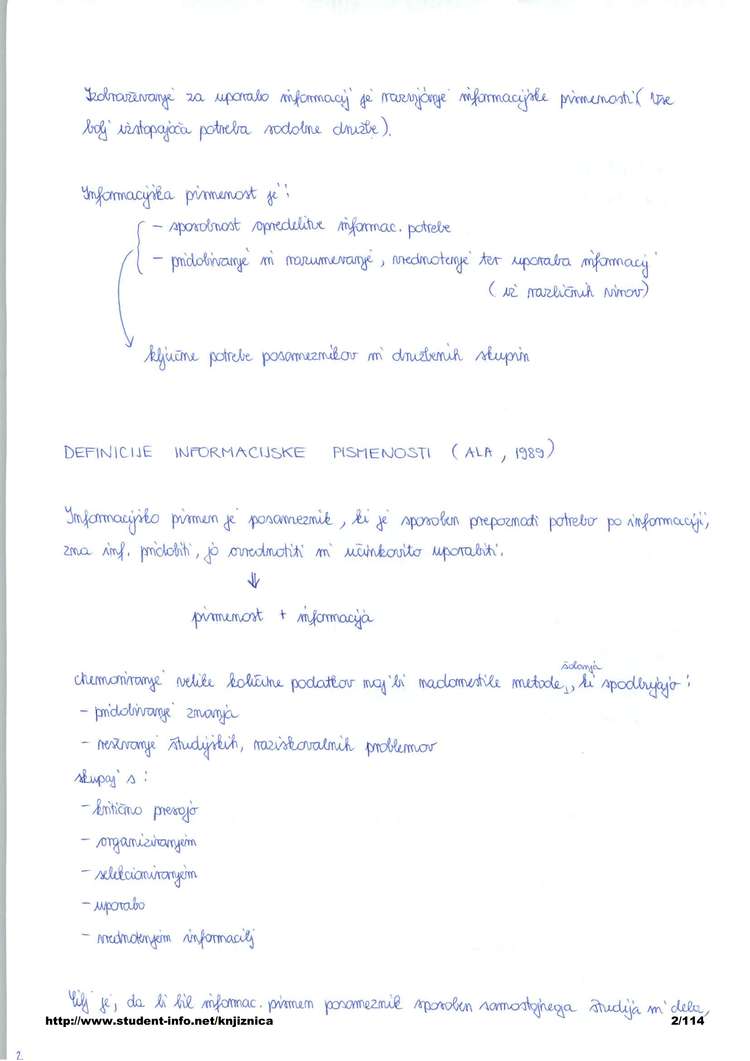 Izobraževanje za uporabo informacij je razvijanje informacijske pismenosti (vse
bolj izstopajoča potreba sodobne družbe).
Informacijska pismenost je:
- sposobnost opredelitve informac. potrebe
- pridobivanje in razumevanje, vrednotenje ter uporaba informacij
(iz različnih virov)
ključne potrebe posameznikov in družbenih skupin
DEFINICIJE INFORMACIJSKE PISMENOSTI (ALA, 1989)
Informacijsko pismen je posameznik, ki je sposoben prepoznati potrebo po informaciji,
zna inf. pridobiti, jo ovrednotiti in učinkovito uporabiti.
⇓
pismenost + informacija
šolanja
Memoriranje velike količine podatkov naj bi nadomestile metode, ki spodbujajo:
- pridobivanje znanja
- reševanje študijskih, raziskovalnih problemov
skupaj s:
- kritično presojo
- organiziranjem
- selekcioniranjem
- uporabo
- vrednotenjem informacij
Cilj je, da bi bil informac. pismen posameznik sposoben samostojnega študija in dela,
http://www.student-info.net/knjiznica 2/114
2